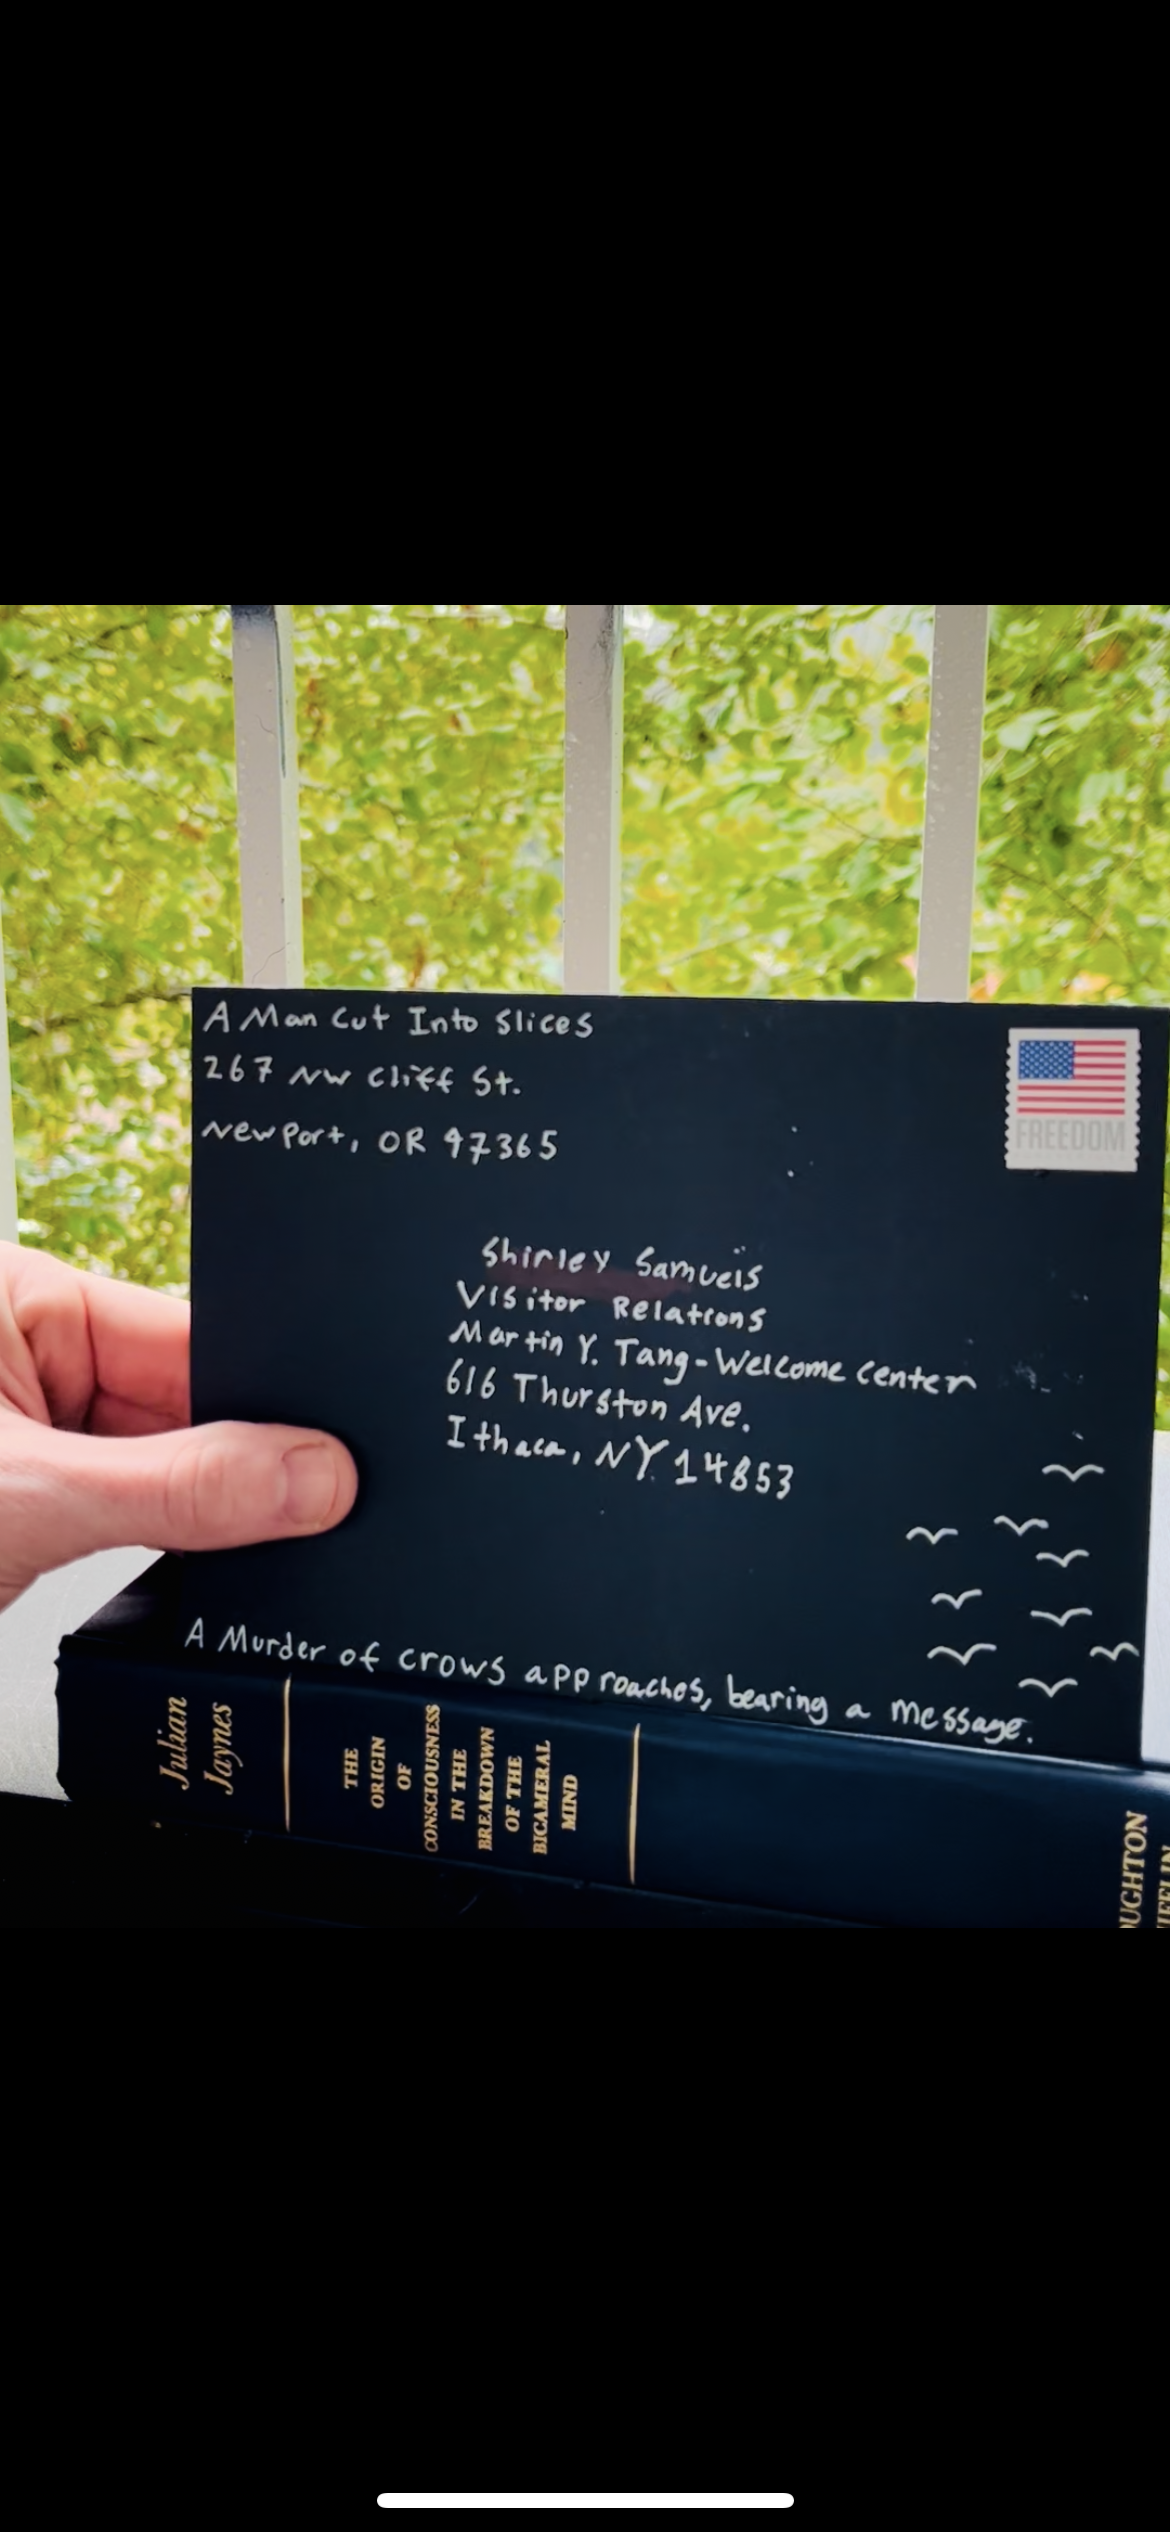 A Man Cut Into Slices
267 NW Cliff St.
Newport, OR 97365
FREEDOM
Shirley Samuels
Visitor Relations
Martin Y. Tang-Welcome Center
616 Thurston Ave.
Ithaca, NY 14853
A Murder of crows approaches, bearing a message.
Julian
Jaynes
THE
ORIGIN
OF
CONSCIOUSNESS
IN THE
BREAKDOWN
OF THE
BICAMERAL
MIND
OUGHTON